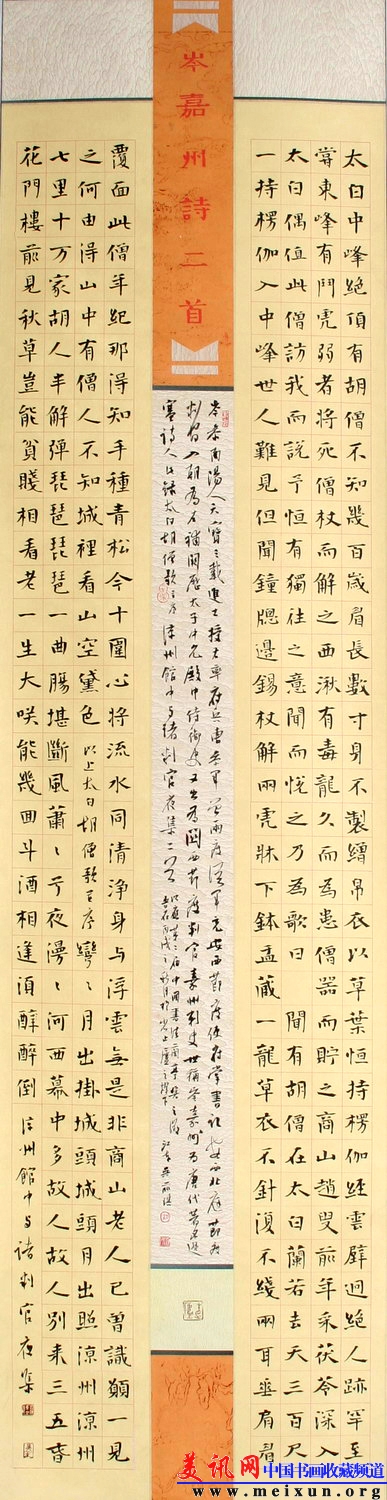 岑嘉州詩二首
太白中峰絶頂有胡僧不知幾百歲眉長數寸身不製繒帛衣以草葉恒持楞伽經雲壁迥絶人跡罕至
嘗東峰有鬥虎弱者將死僧杖而解之西湫有毒龍久而為患僧器而貯之商山趙叟前年采茯苓深入
太白偶值此僧訪我而說予恒有獨往之意聞而悅之乃為歌曰 聞有胡僧在太白蘭若去天三百尺
一持楞伽入中峰世人難見但聞鐘牕邊錫杖解兩虎牀下鉢盂藏一龍草衣不針復不綫兩耳垂肩眉
岑參南陽人天寶三載進士授右率府兵曹參軍曾兩度從軍充安西節度使府掌書記安西北庭節度
判官入朝為右補闕歷太子中允殿中侍御史又出為關西節度判官嘉州刺史世稱岑嘉州為唐代著名邊
塞詩人今錄太白胡僧歌並序涼州館中与諸判官夜集二首
覆面此僧年紀那得知手種青松今十圍心將流水同清淨身与浮雲無是非商山老人已曾識願一見
之何由得山中有僧人不知城裡看山空黛色 以上太白胡僧歌並序 彎〻月出掛城頭城頭月出照涼州涼州
七里十万家胡人半解彈琵琶琵琶一曲腸堪斷風蕭〻兮夜漫〻河西幕中多故人故人別來三五春
花門樓前見秋草豈能貧賤相看老一生大咲能幾回斗酒相逢須醉倒 涼州館中与諸判官夜集
美讯网 中国书画收藏频道
www.meixun.org